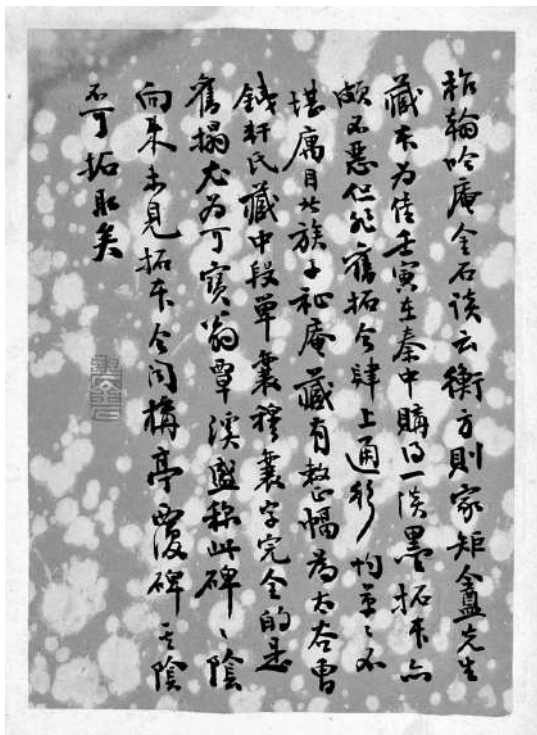 稚翰吟庵金石談云衡方則家矩盦先生
藏本為佳壬寅在秦中購得一淡墨拓本亦
頗不惡但非舊拓今肆上通行均草〻不
堪屬目此族子祉庵藏有整幅為太谷曹
銕軒氏藏中段單襄穆襄字完全的是
舊搨尤為可寶翁覃溪盛稱此碑〻陰
向來未見拓本今聞構亭覆碑其陰
不可拓取矣